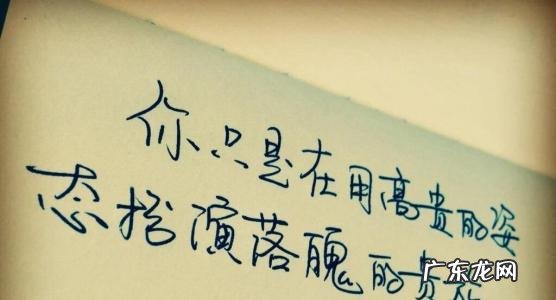 你只是在用高贵的姿
态扮演落魄的贵
广东龙网